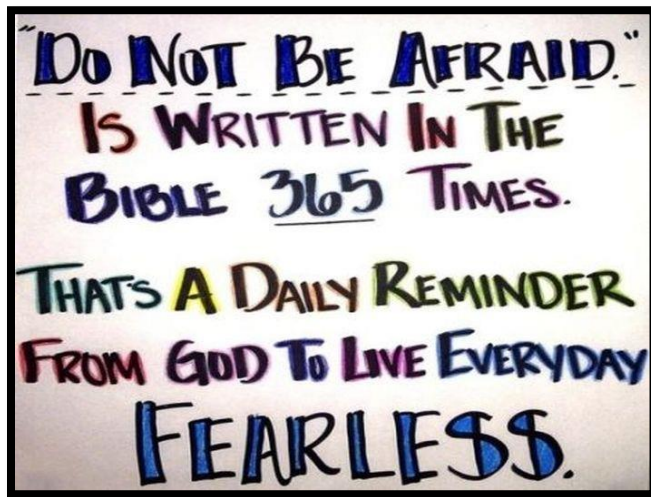 "DO NOT BE AFRAID."
IS WRITTEN IN THE
BIBLE 365 TIMES.
THAT'S A DAILY REMINDER
FROM GOD TO LIVE EVERYDAY
FEARLESS.